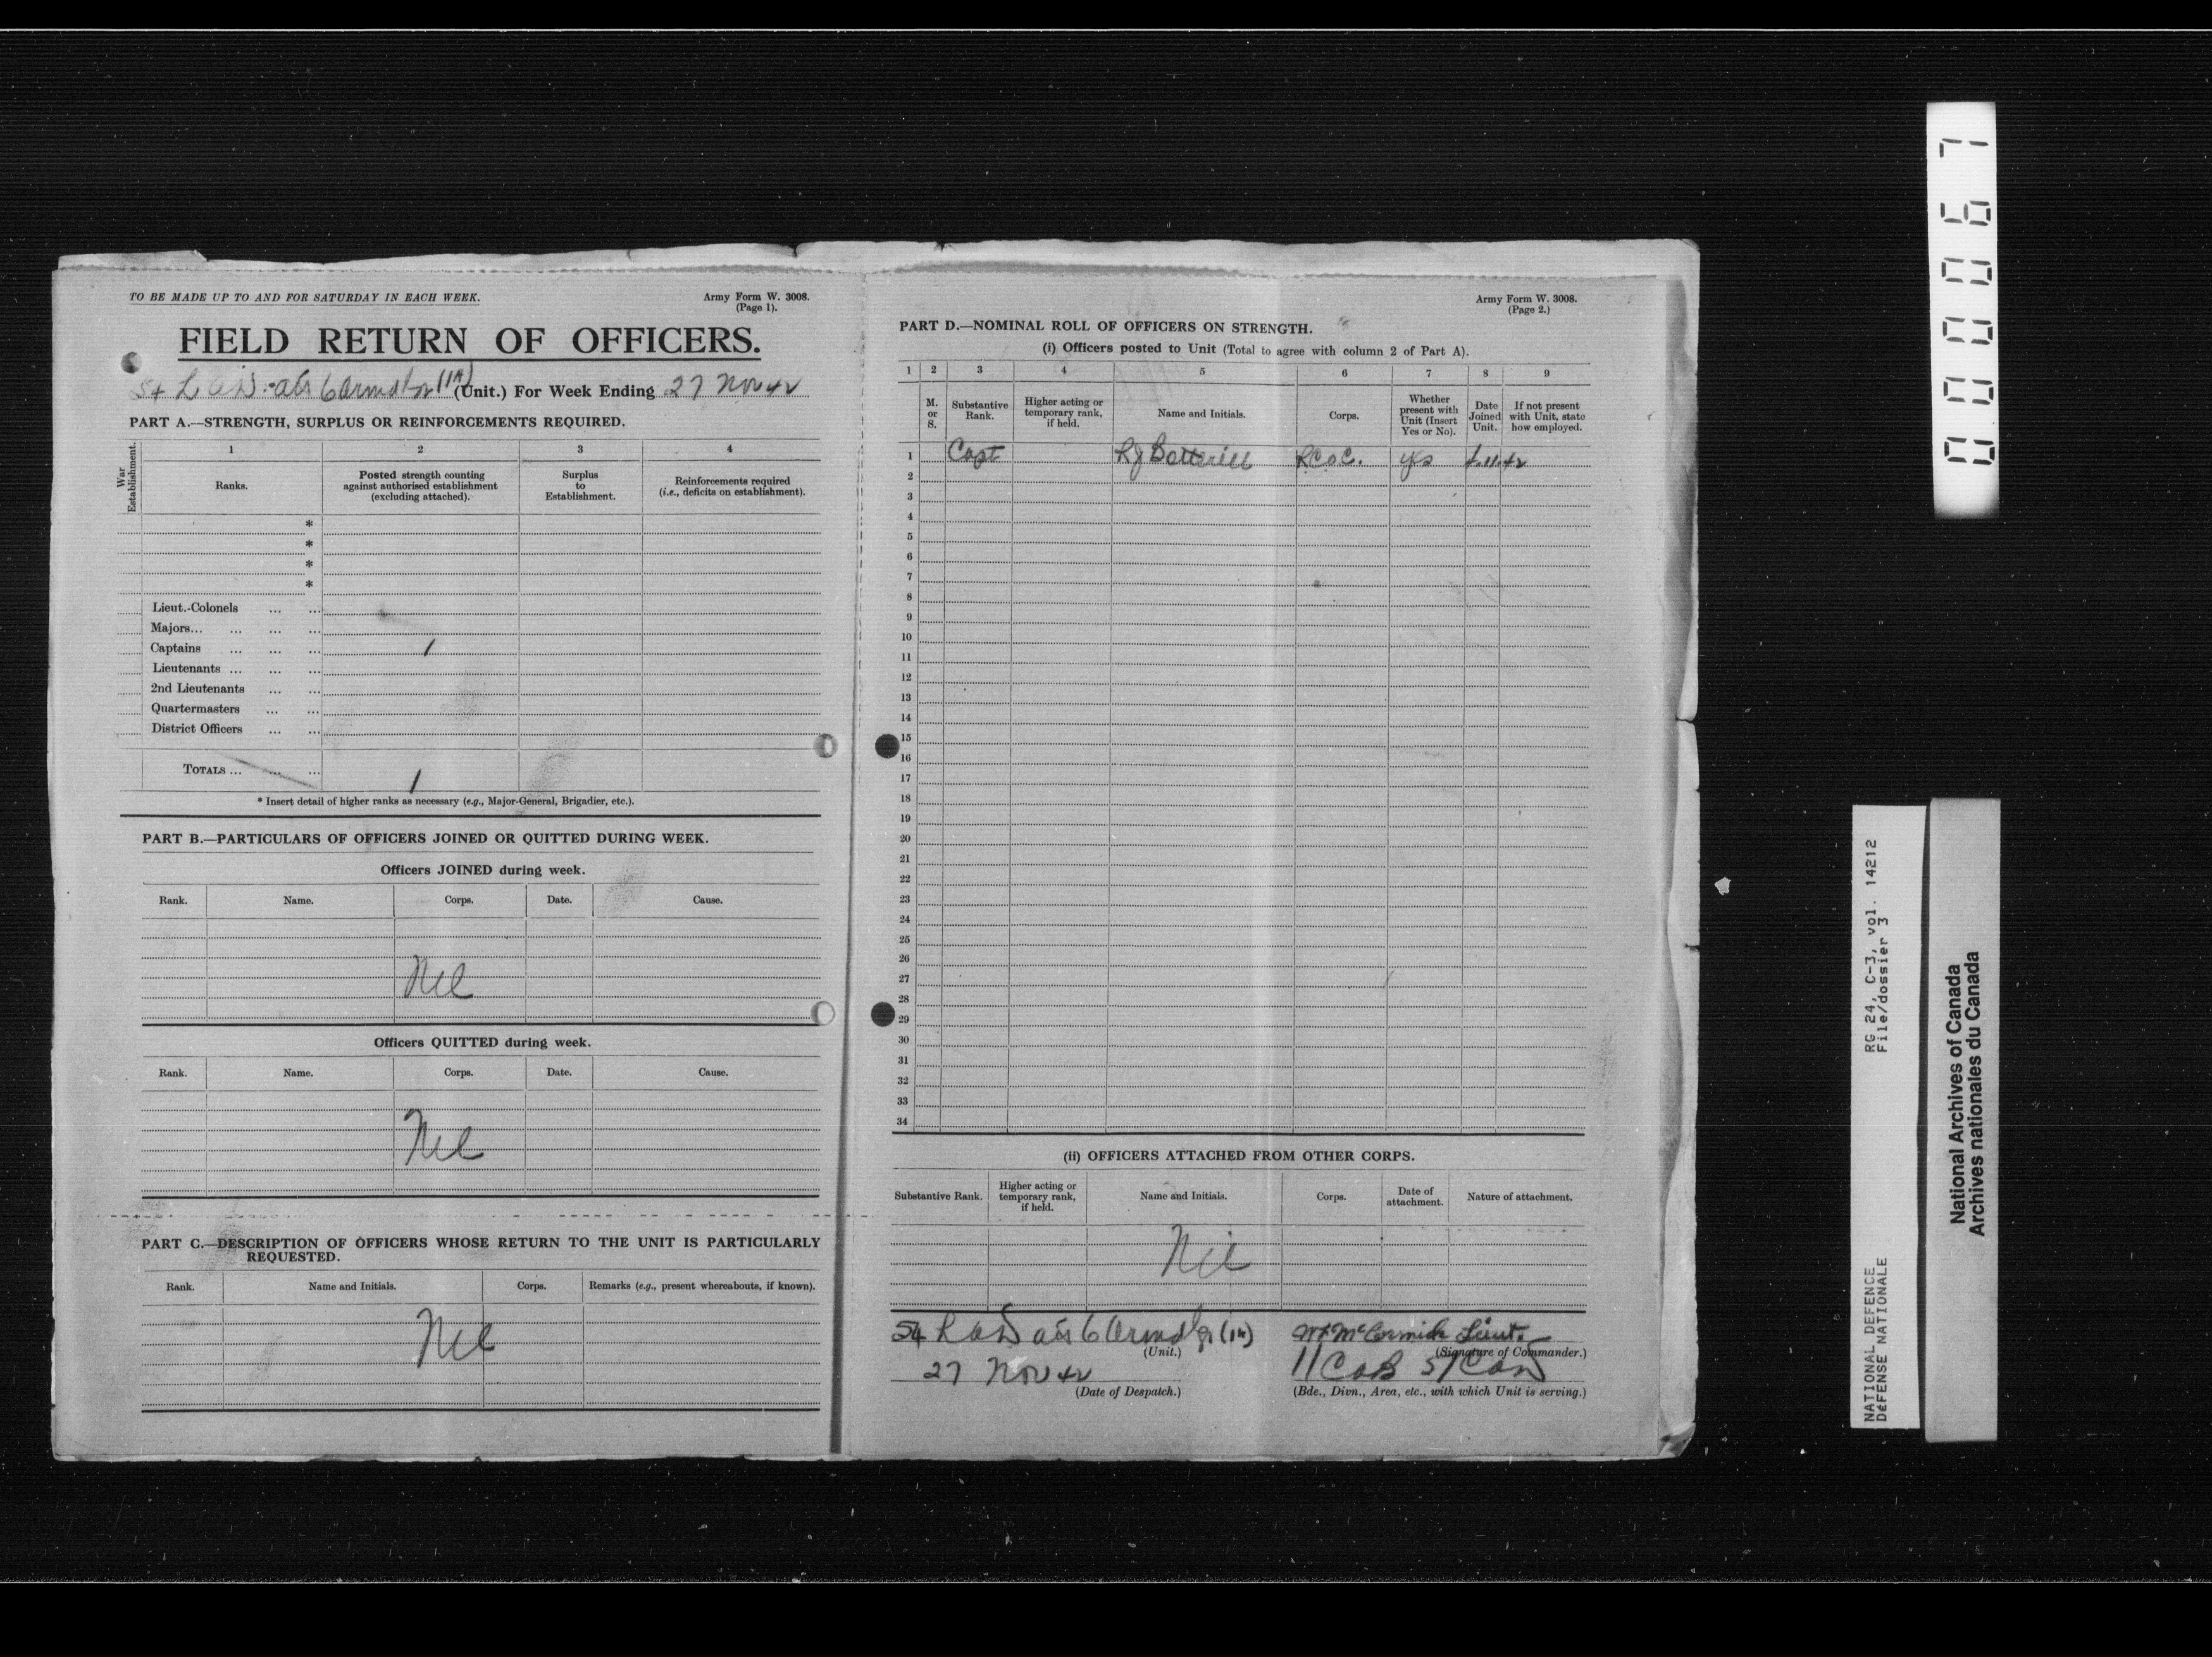 TO BE MADE UP TO AND FOR SATURDAY IN EACH WEEK.
Army Form W. 3008.
(Page 1).
FIELD RETURN OF OFFICERS.
54 L A D (Unit.) For Week Ending 27 Nov 42
PART A.—STRENGTH, SURPLUS OR REINFORCEMENTS REQUIRED.
War Establishment.
1 2 3 4
Ranks.
Posted strength counting against authorised establishment (excluding attached).
Surplus to Establishment.
Reinforcements required (i.e., deficits on establishment).
*
*
*
*
Lieut.-Colonels ... ...
Majors... ... ... ...
Captains ... ... ... 1
Lieutenants ... ... ...
2nd Lieutenants ... ...
Quartermasters ... ...
District Officers ... ...
TOTALS ... ... ... 1
* Insert detail of higher ranks as necessary (e.g., Major-General, Brigadier, etc.).
PART B.—PARTICULARS OF OFFICERS JOINED OR QUITTED DURING WEEK.
Officers JOINED during week.
Rank. Name. Corps. Date. Cause.
Nil
Officers QUITTED during week.
Rank. Name. Corps. Date. Cause.
Nil
PART C.—DESCRIPTION OF OFFICERS WHOSE RETURN TO THE UNIT IS PARTICULARLY
REQUESTED.
Rank. Name and Initials. Corps. Remarks (e.g., present whereabouts, if known).
Nil
Army Form W. 3008.
(Page 2.)
PART D.—NOMINAL ROLL OF OFFICERS ON STRENGTH.
(i) Officers posted to Unit (Total to agree with column 2 of Part A).
1 2 3 4 5 6 7 8 9
M. or S.
Substantive Rank.
Higher acting or temporary rank, if held.
Name and Initials.
Corps.
Whether present with Unit (Insert Yes or No).
Date Joined Unit.
If not present with Unit, state how employed.
1 Capt RJ Botterill RCOC. yes 4.11.42
2
3
4
5
6
7
8
9
10
11
12
13
14
15
16
17
18
19
20
21
22
23
24
25
26
27
28
29
30
31
32
33
34
(ii) OFFICERS ATTACHED FROM OTHER CORPS.
Substantive Rank.
Higher acting or temporary rank, if held.
Name and Initials.
Corps.
Date of attachment.
Nature of attachment.
Nil
54 L A D
(Unit.)
McCormick Lieut.
(Signature of Commander.)
27 Nov 42
(Date of Despatch.)
(Bde., Divn., Area, etc., with which Unit is serving.)
000067
RG 24, C-3, vol. 14212
File/dossier 3
NATIONAL DEFENCE
DéFENSE NATIONALE
National Archives of Canada
Archives nationales du Canada